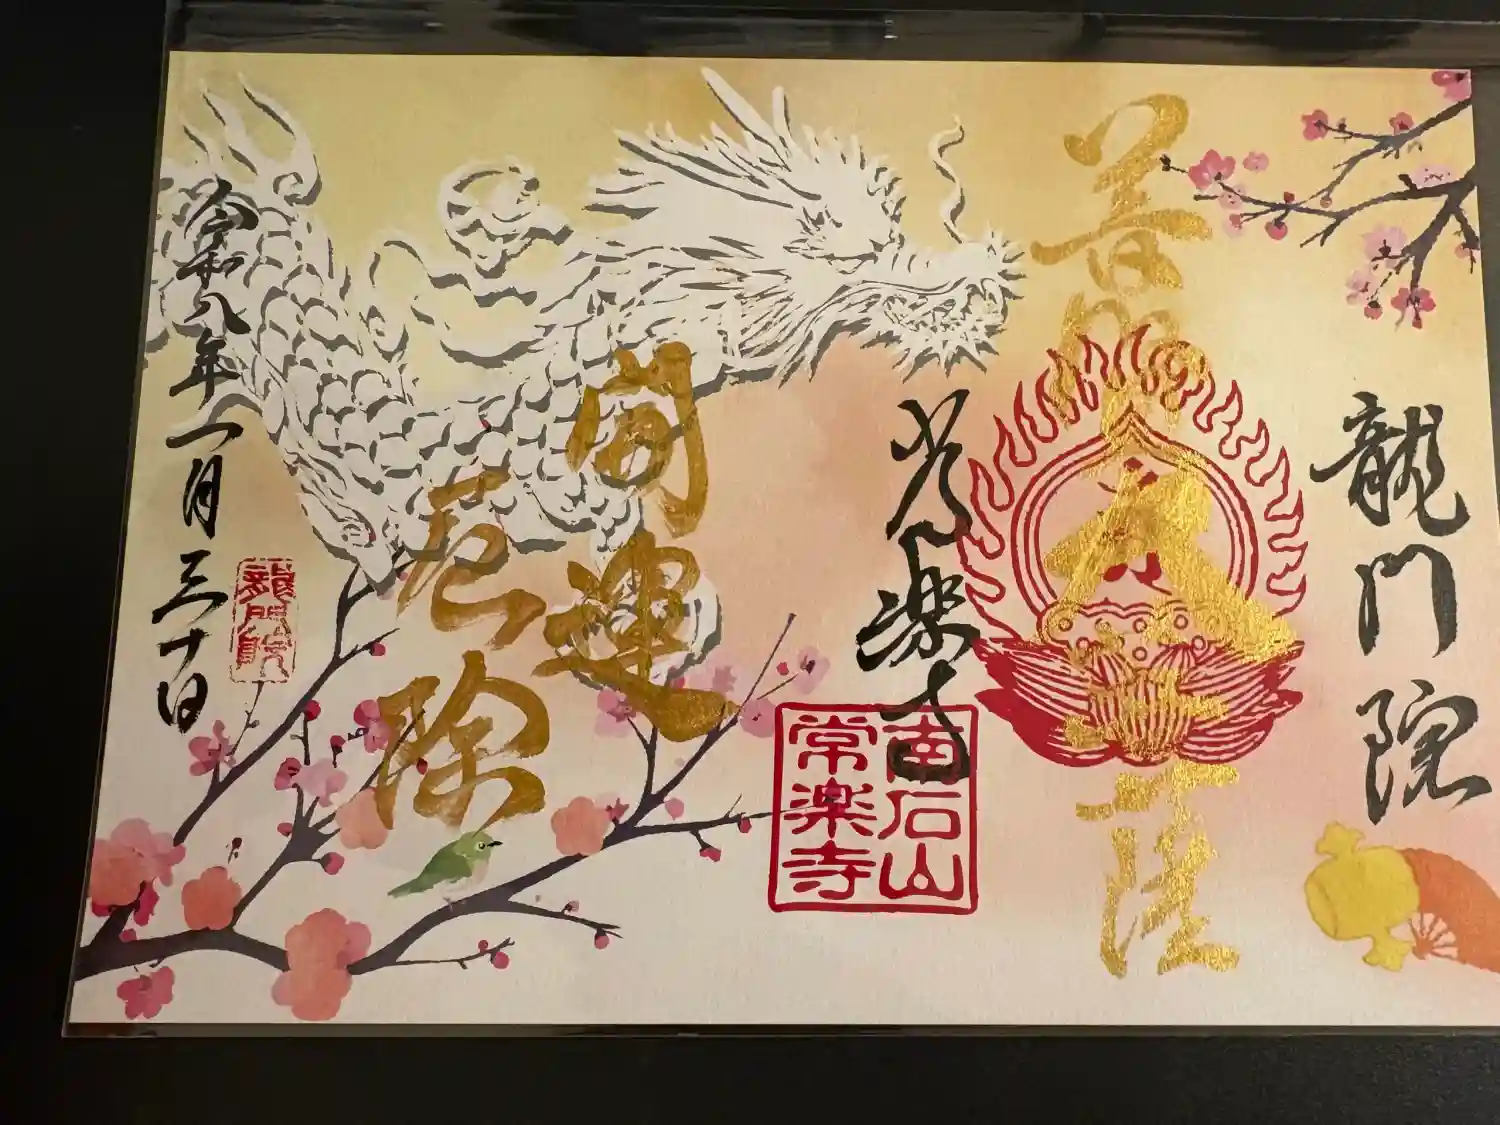 龍門院
常楽寺
南石山
常楽寺
開運
厄除
令和八年一月三十日
龍門院